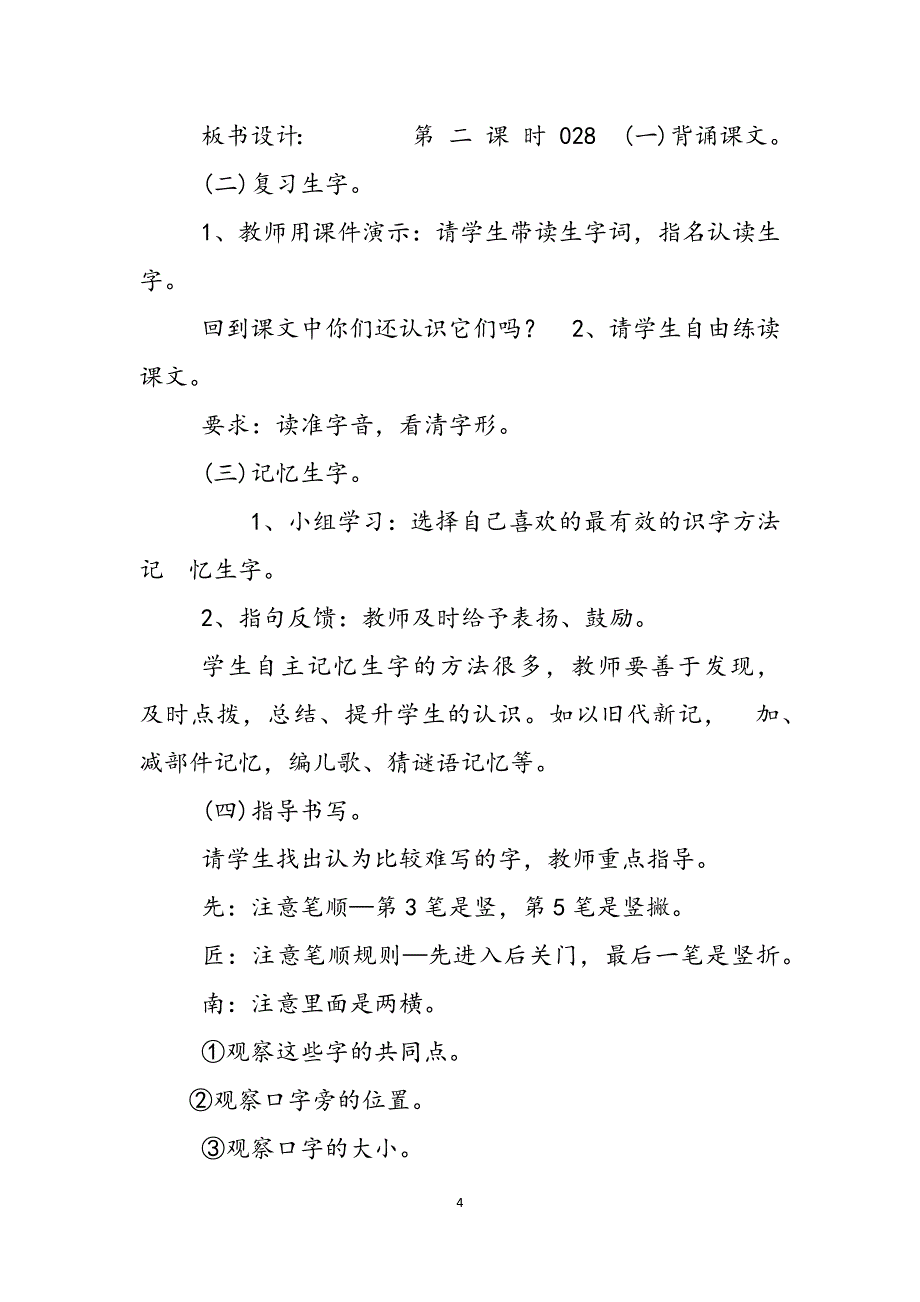 板书设计： 第 二 课 时 028 (一)背诵课文。
(二)复习生字。
1、教师用课件演示：请学生带读生字词，指名认读生
字。
回到课文中你们还认识它们吗？ 2、请学生自由练读
课文。
要求：读准字音，看清字形。
(三)记忆生字。
1、小组学习：选择自己喜欢的最有效的识字方法
记 忆生字。
2、指句反馈：教师及时给予表扬、鼓励。
学生自主记忆生字的方法很多，教师要善于发现，
及时点拨，总结、提升学生的认识。如以旧代新记， 加、
减部件记忆，编儿歌、猜谜语记忆等。
(四)指导书写。
请学生找出认为比较难写的字，教师重点指导。
先：注意笔顺—第3笔是竖，第5笔是竖撇。
匠：注意笔顺规则—先进入后关门，最后一笔是竖折。
南：注意里面是两横。
①观察这些字的共同点。
②观察口字旁的位置。
③观察口字的大小。
4